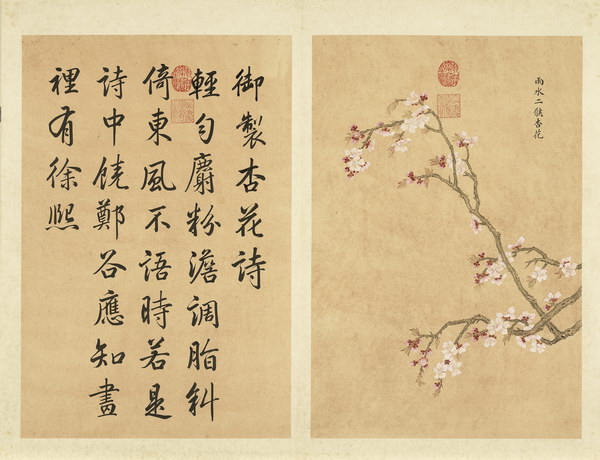 雨水二候杏花
御製杏花詩
輕勻麝粉澹調脂斜
倚東風不語時若是
詩中饒鄭谷應知畫
裡有徐熙